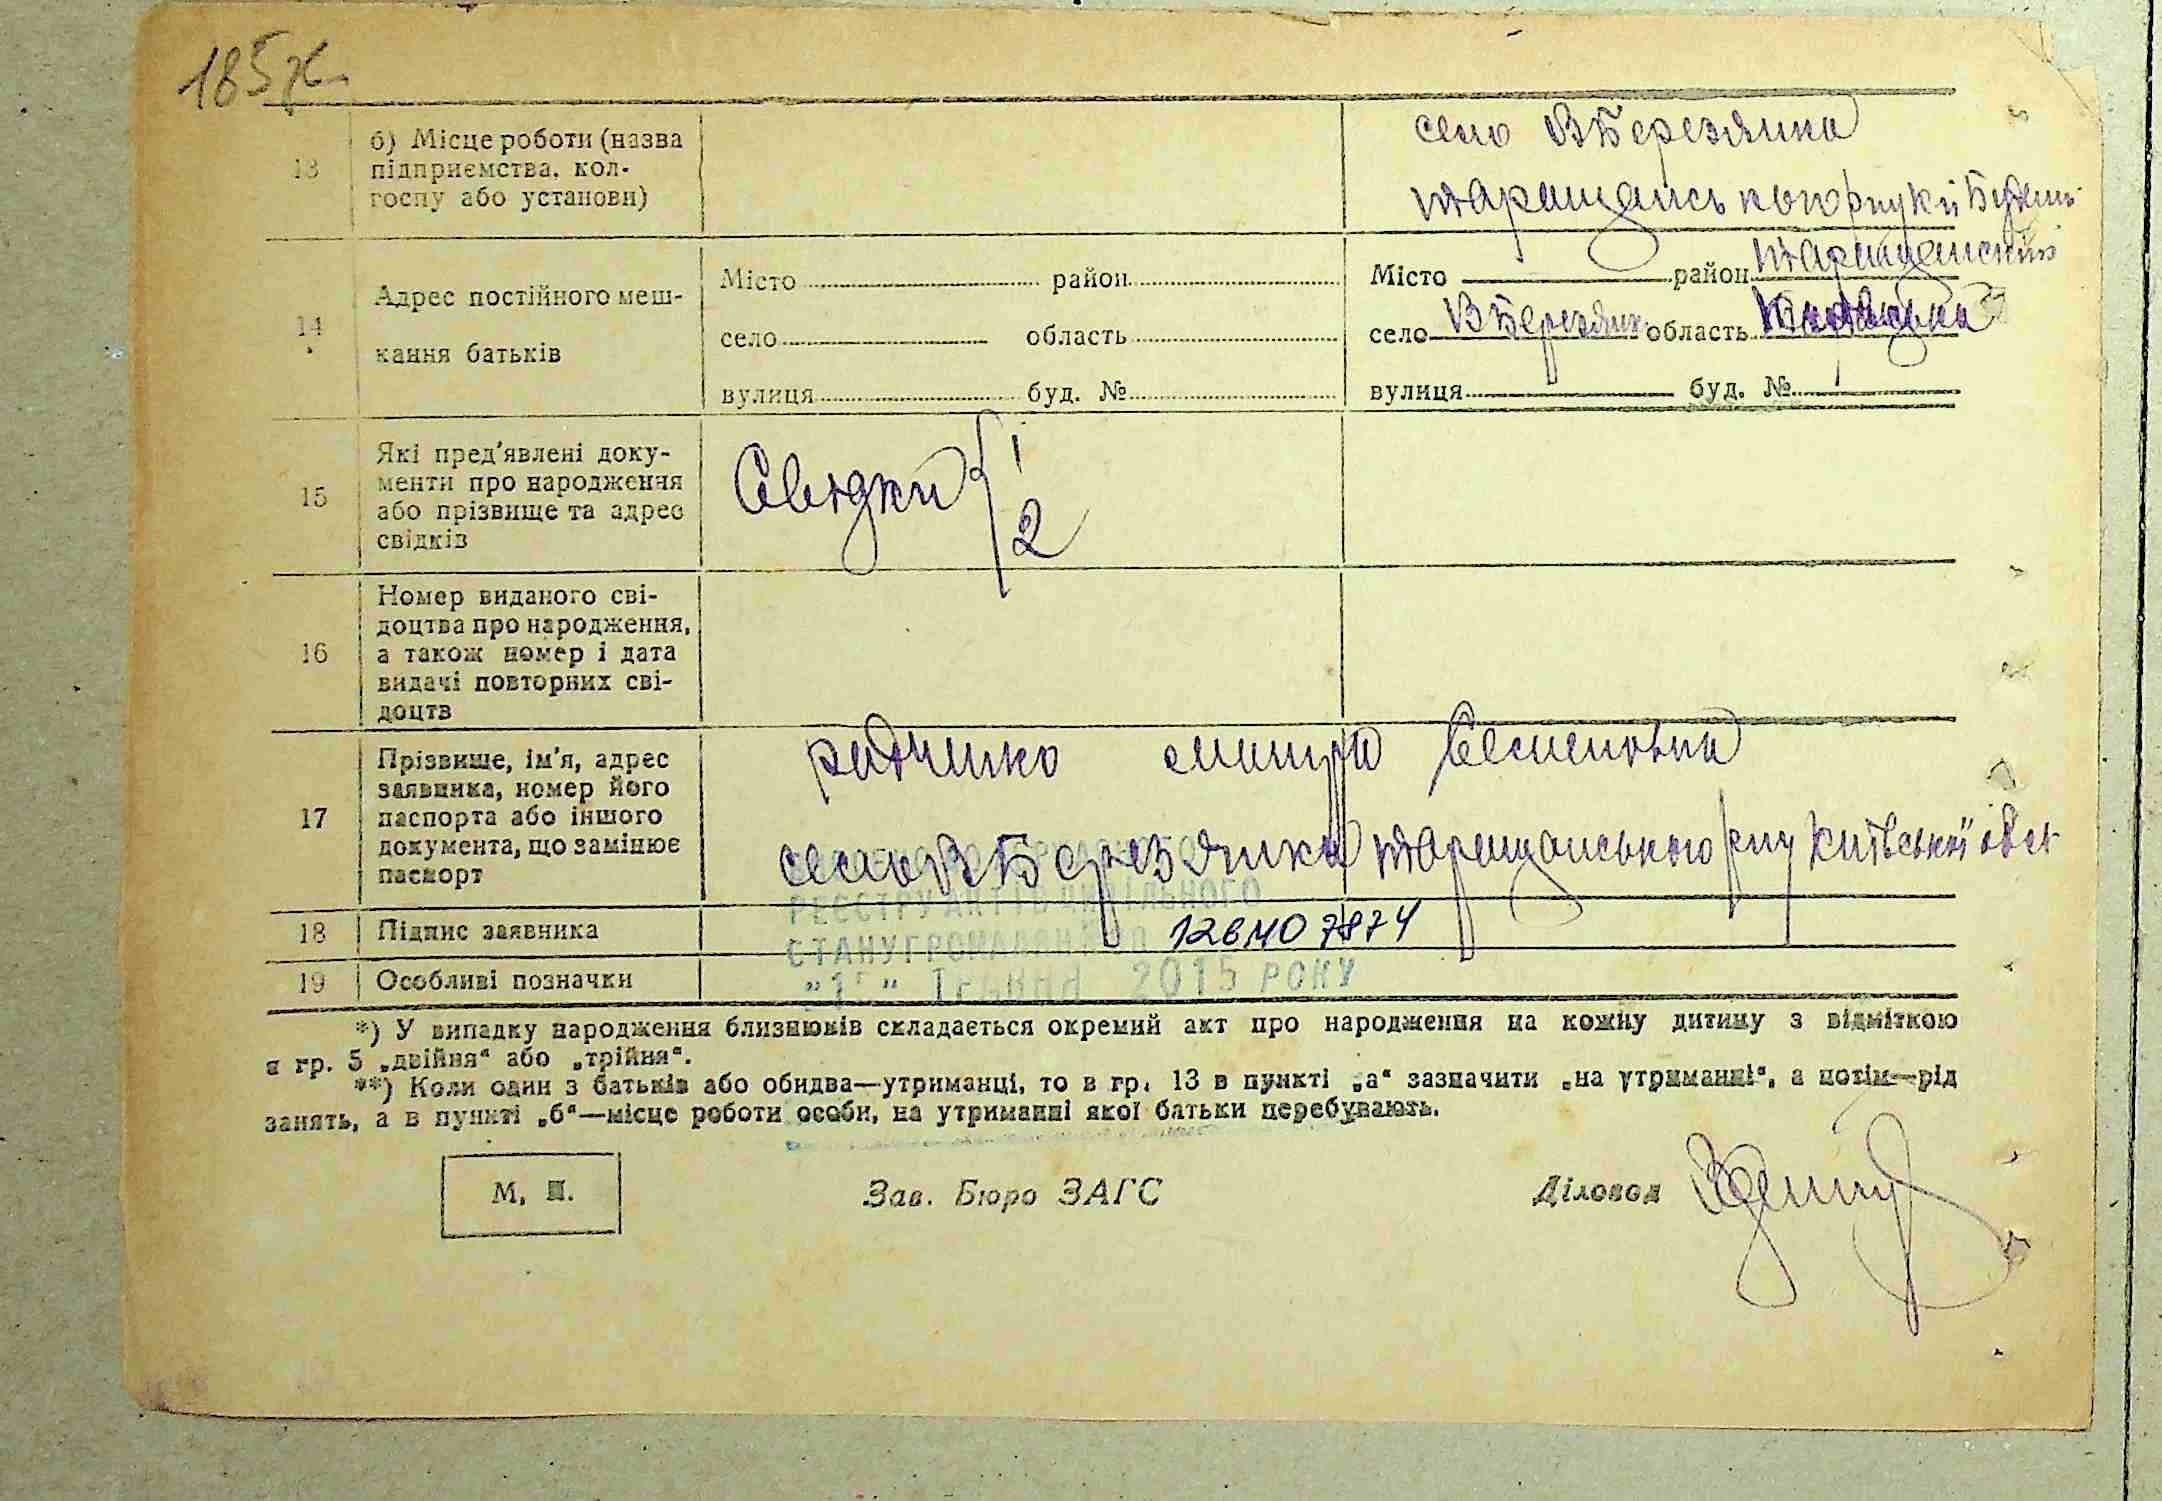 185
13 б) Місце роботи (назва підприємства, колгоспу або установи)
село ВБерезянка
Таращанського р-ну
14 Адрес постійного мешкання батьків
Місто район
село область
вулиця буд. №
Місто район Таращанский
село ВБерезянк область
вулиця буд. №
15 Які пред'явлені документи про народження або прізвище та адрес свідків
Свідки 1
2
16 Номер виданого свідоцтва про народження, а також номер і дата видачі повторних свідоцтв
17 Прізвище, ім'я, адрес заявника, номер його паспорта або іншого документа, що замінює паспорт
Семеновна
село ВБерезянка Таращанського р-ну Київської обл
РЕЄСТРУ АКТІВ ЦИВІЛЬНОГО
18 Підпис заявника
СТАНУ ГРОМАДЯН
19 Особливі позначки
2015 РОКУ
*) У випадку народження близнюків складається окремий акт про народження на кожну дитину з відміткою
в гр. 5 „двійня“ або „трійня“.
**) Коли один з батьків або обидва—утриманці, то в гр. 13 в пункті „а“ зазначити „на утриманні“, а потім—рід
занять, а в пункті „б“—місце роботи особи, на утриманні якої батьки перебувають.
М. П. Зав. Бюро ЗАГС Діловод